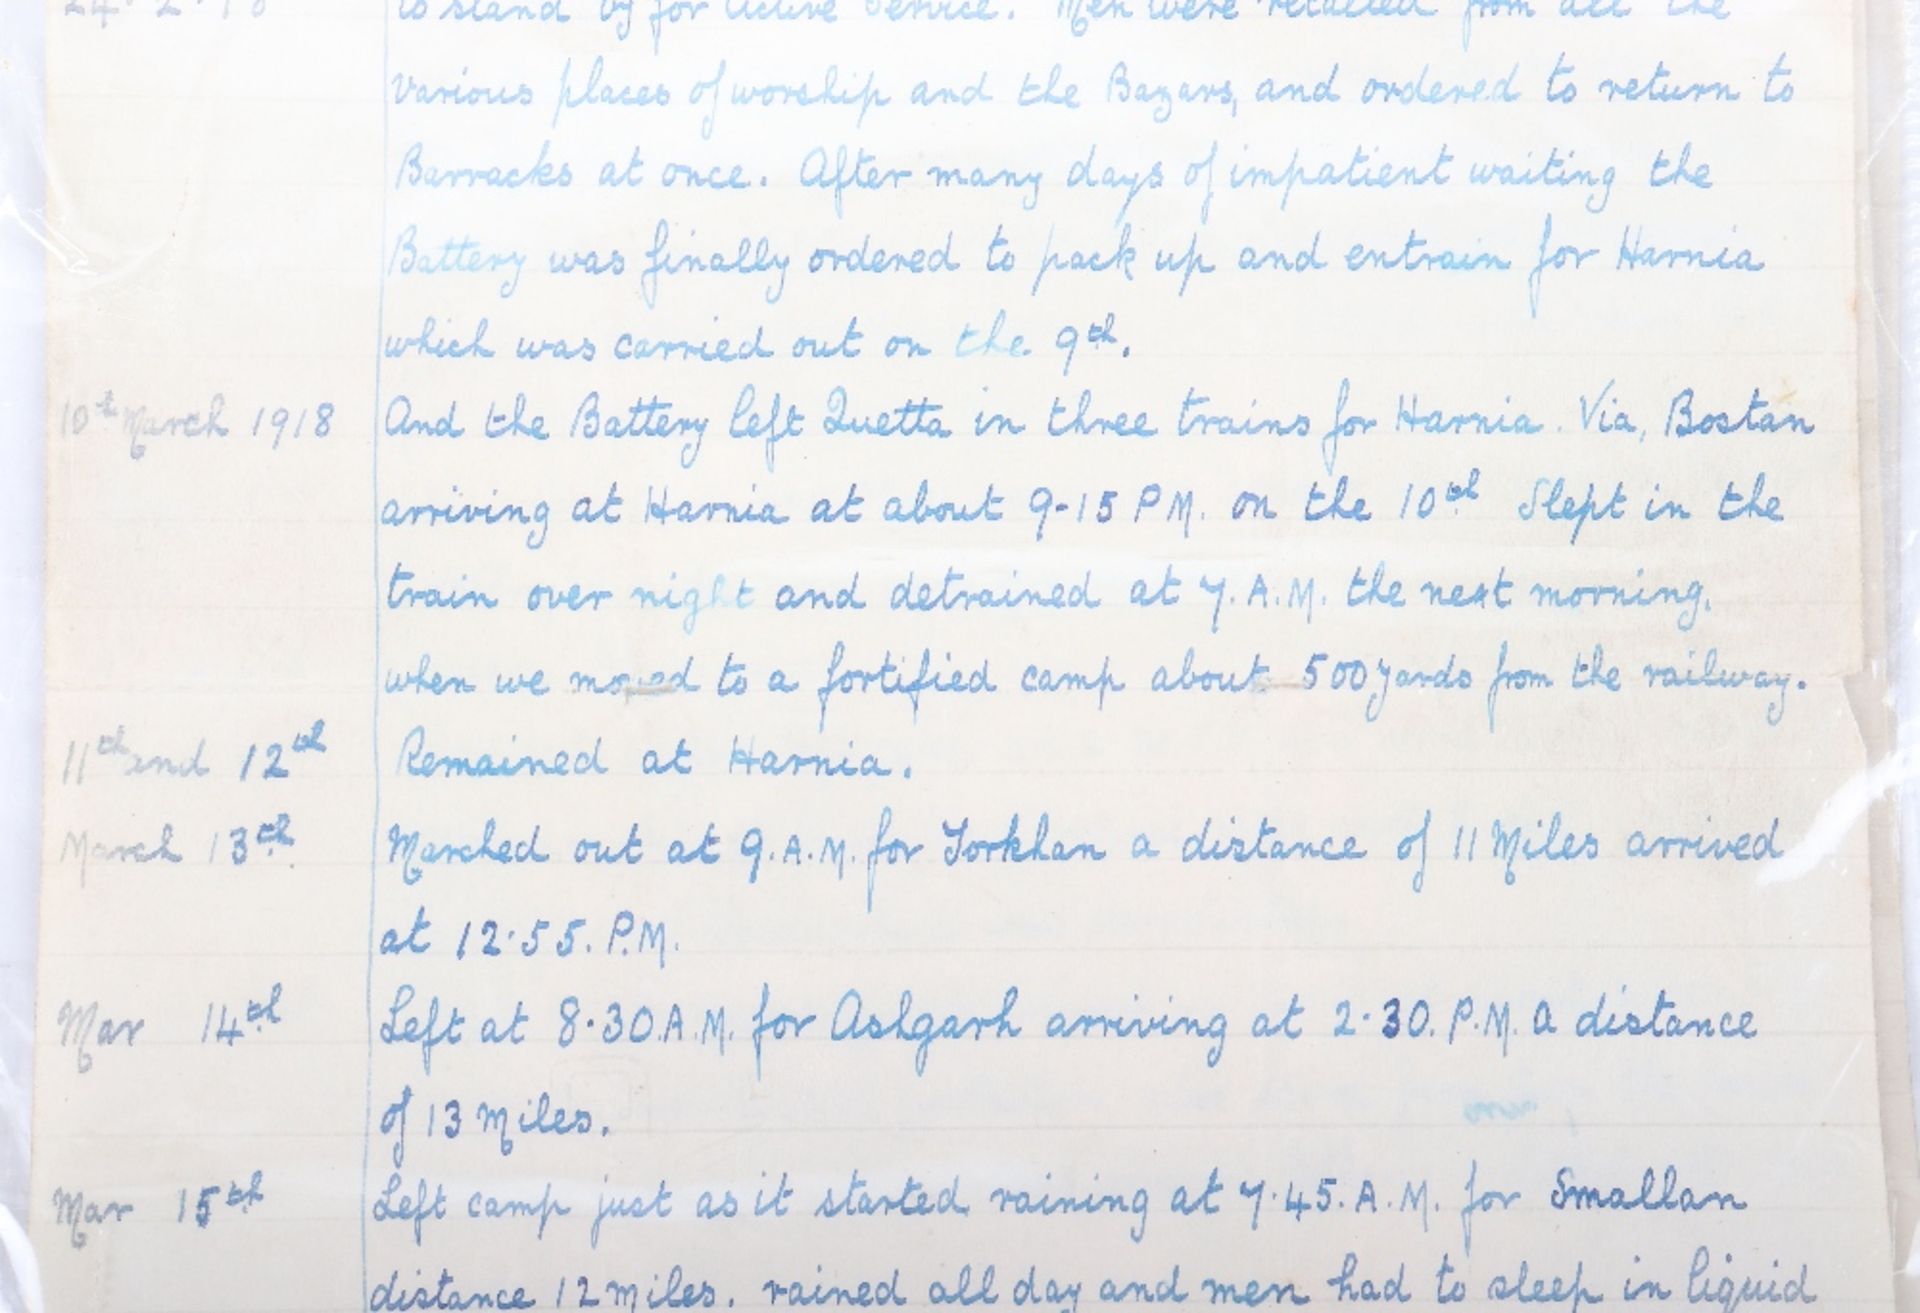 24.2.18 to stand by for Active Service. Men were recalled from all the
various places of worship and the Bazars, and ordered to return to
Barracks at once. After many days of impatient waiting the
Battery was finally ordered to pack up and entrain for Harnia
which was carried out on the 9th.
10th March 1918 And the Battery left Quetta in three trains for Harnia. Via, Bostan
arriving at Harnia at about 9-15 P.M. on the 10th Slept in the
train over night and detrained at 7. A.M. the next morning,
when we moved to a fortified camp about 500 yards from the railway.
11th and 12th Remained at Harnia.
March 13th Marched out at 9. A.M. for Torkhan a distance of 11 Miles arrived
at 12.55. P.M.
Mar 14th Left at 8.30. A.M. for Ashgarh arriving at 2.30. P.M. a distance
of 13 Miles.
Mar 15th Left camp just as it started raining at 7.45. A.M. for Smallan
distance 12 miles. rained all day and men had to sleep in liquid